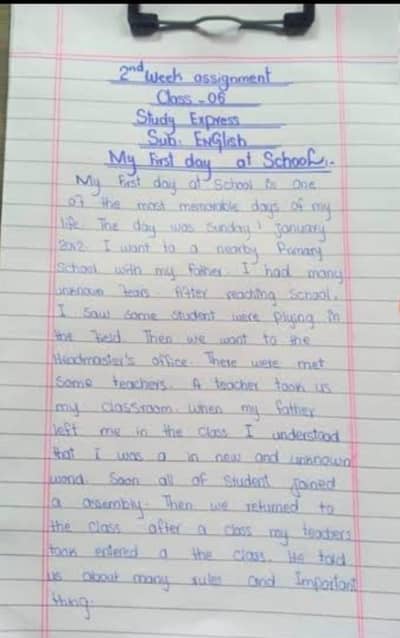 2nd Week assignment
Class - 06
Study Express
Sub: English
My First day at School :-
My First day at School is one
of the most memorable days of my
life. The day was Sunday 1 January
2012. I want to a nearby Primary
School with my father. I had many
unknown fears. After reaching School,
I saw some student were Plying in
the field. Then we want to the
Headmaster's office. There were met
Some teachers. A teacher took us
my classroom. when my father
left me in the class I understood
that I was a in new and unknown
world. Soon all of Student joined
a assembly. Then we returned to
the class. after a class my teachers
took entered a the class. He told
us about many rules and Important
thing.